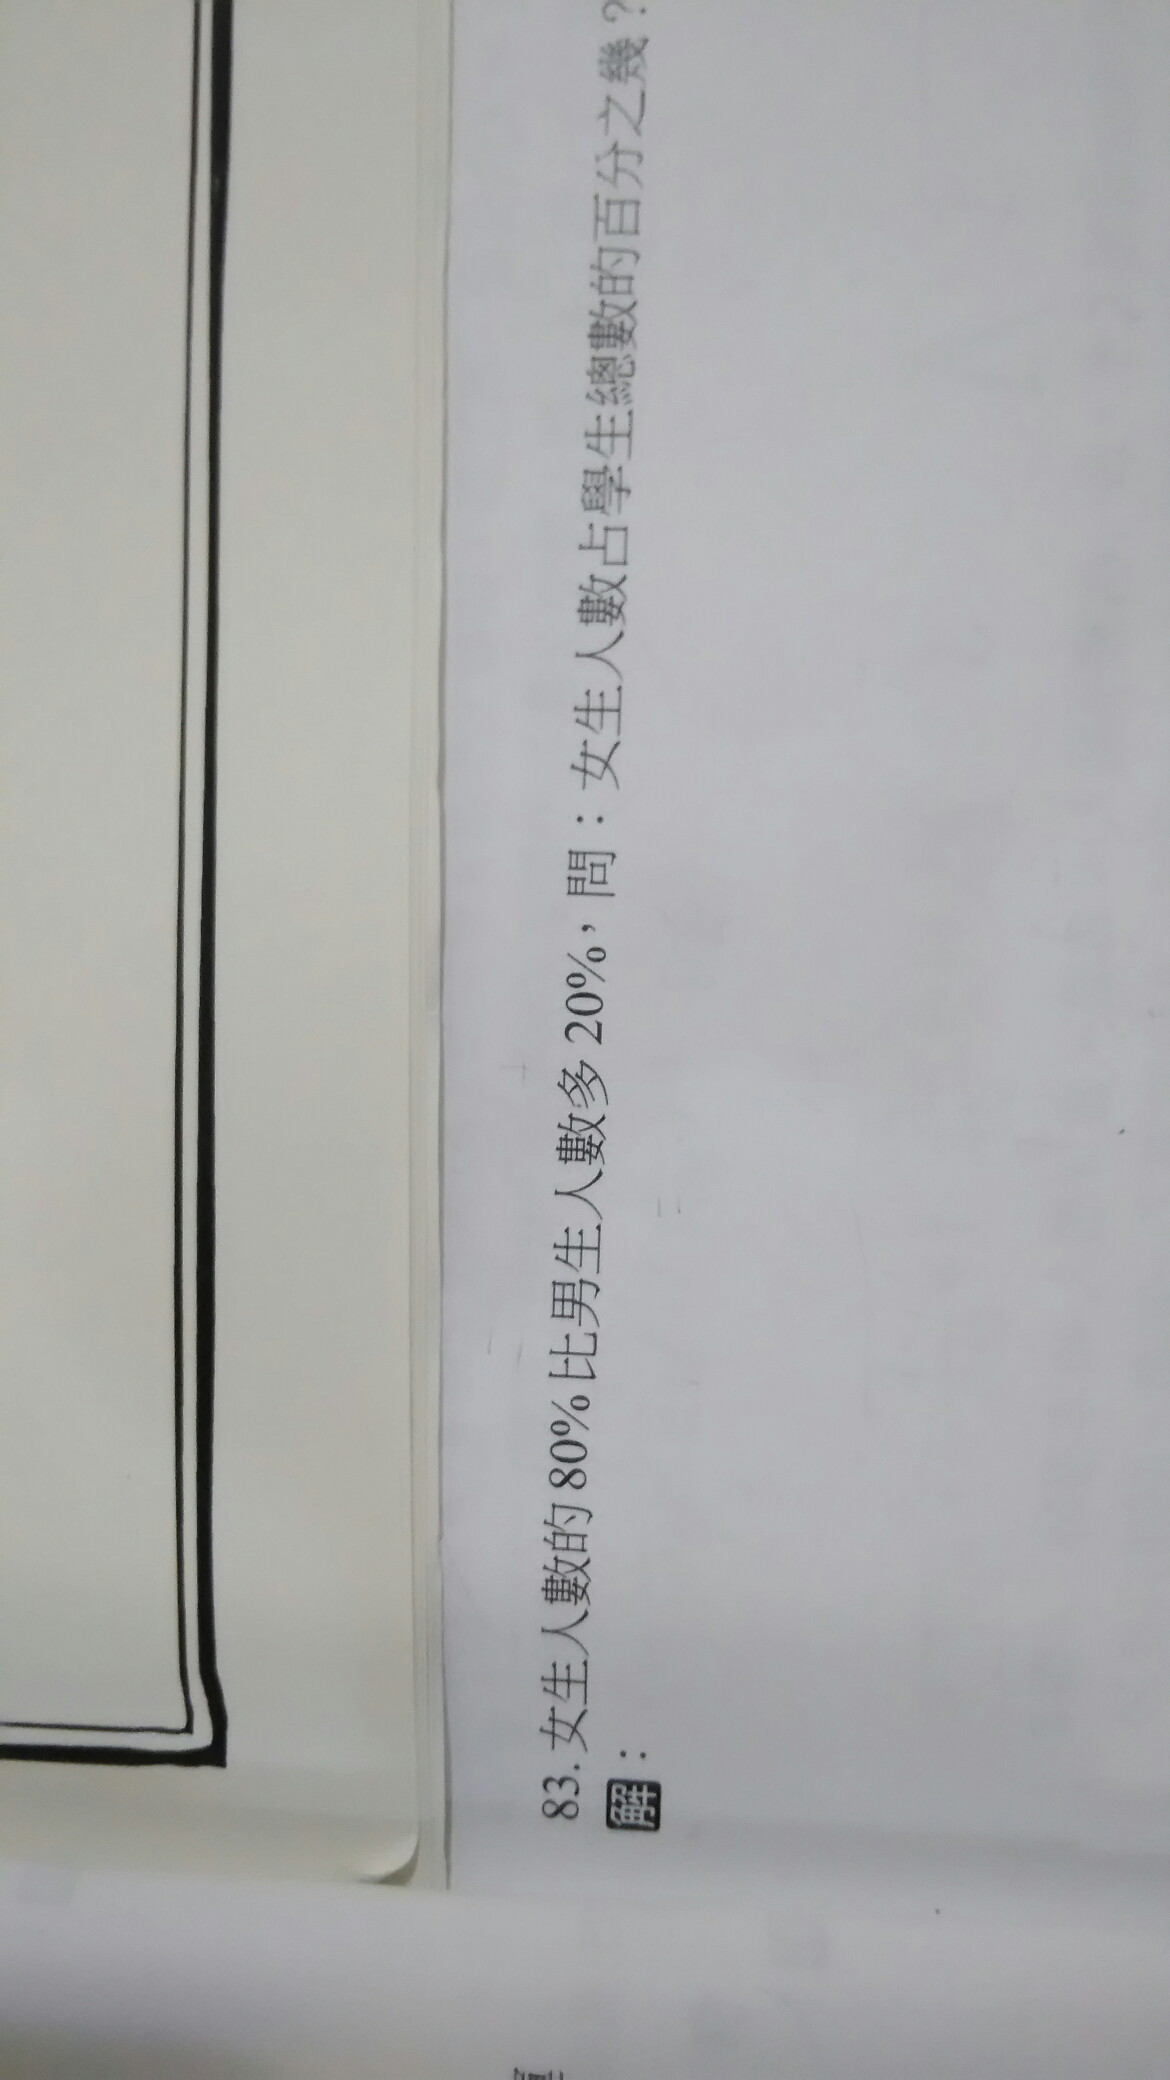 83. 女生人數的 80% 比男生人數多 20%，問：女生人數占學生總數的百分之幾？
解：